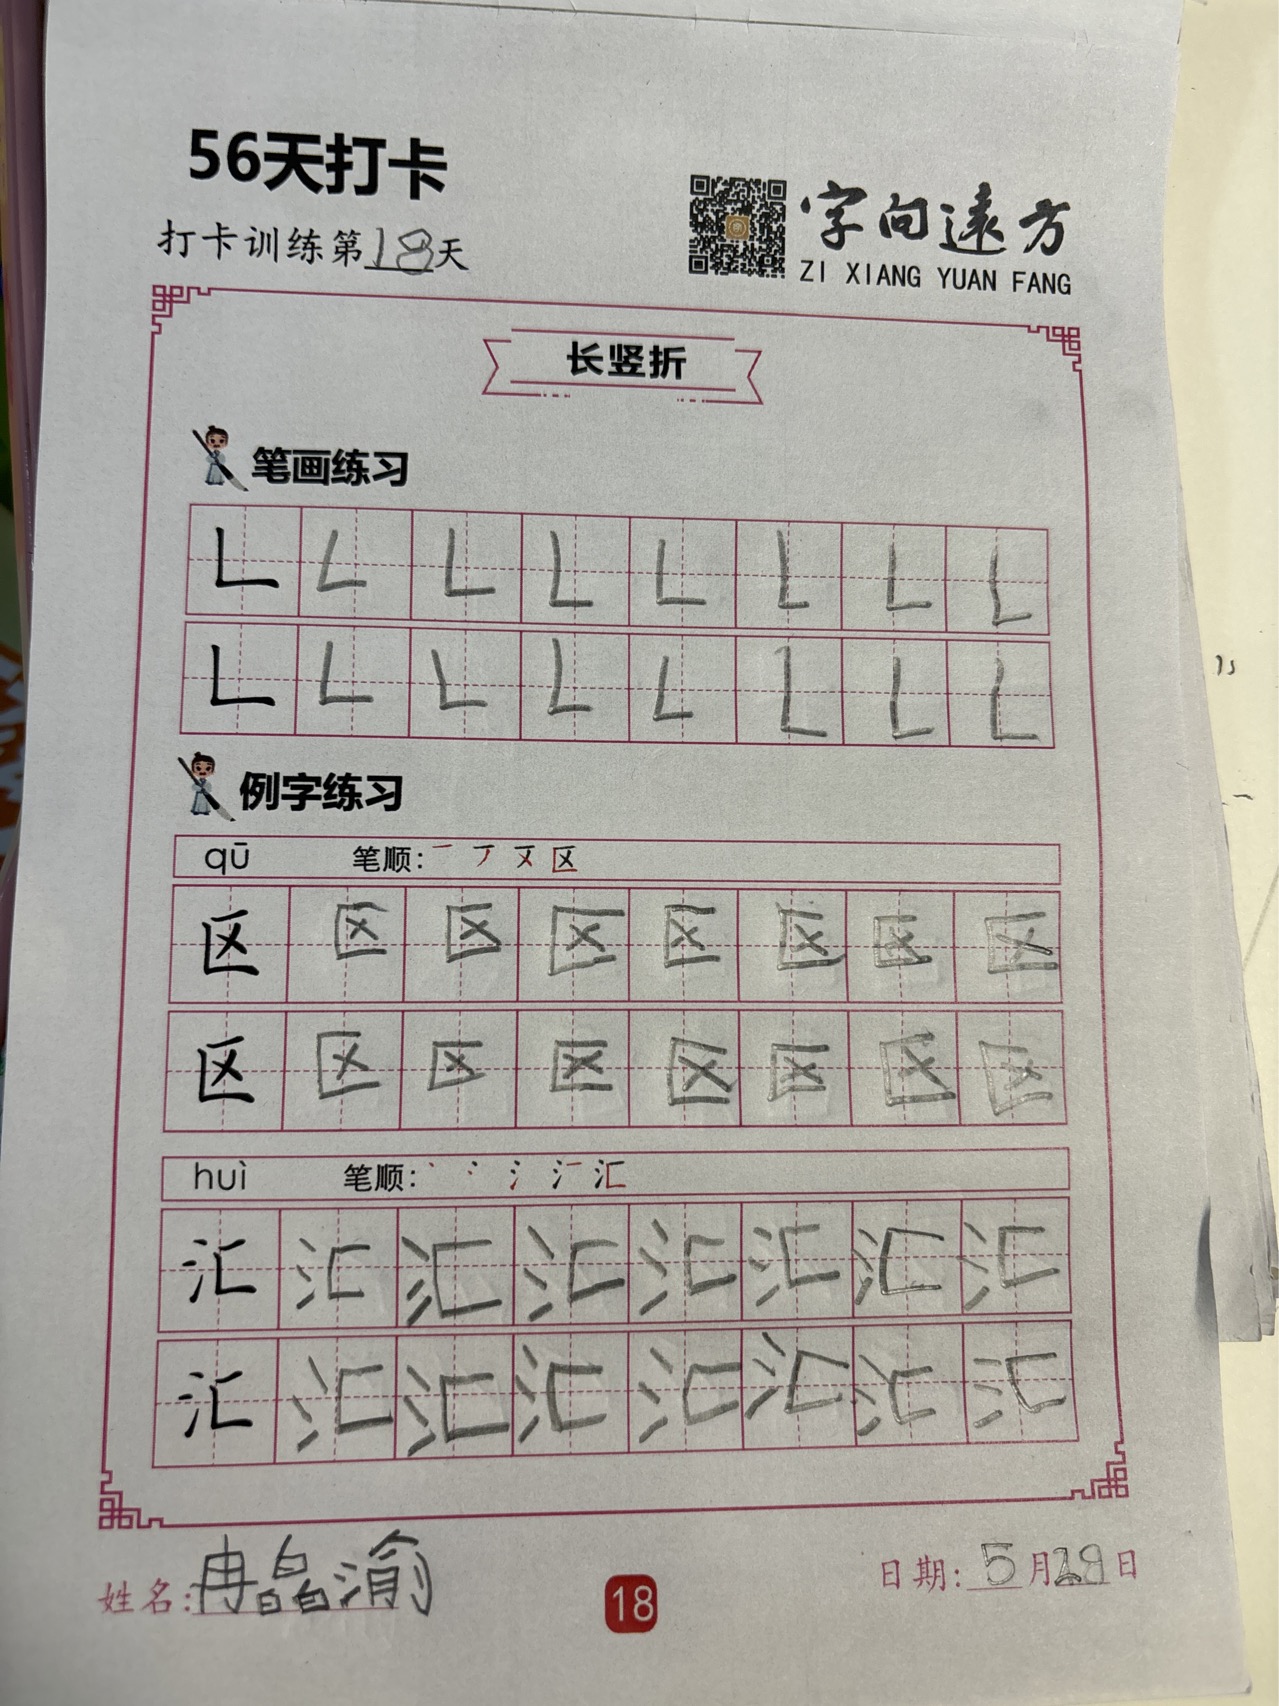 56天打卡
打卡训练第18天
字向遠方
ZI XIANG YUAN FANG
长竖折
笔画练习
㇗ ㇗ ㇗ ㇗ ㇗ ㇗ ㇗ ㇗
㇗ ㇗ ㇗ ㇗ ㇗ ㇗ ㇗ ㇗
例字练习
qū 笔顺: 一 丆 区
区 区 区 区 区 区 区 区
区 区 区 区 区 区 区 区
huì 笔顺: 丶 冫 氵 汇
汇 汇 汇 汇 汇 汇 汇 汇
汇 汇 汇 汇 汇 汇 汇 汇
姓名: 冉皛渝
18
日期: 5月28日